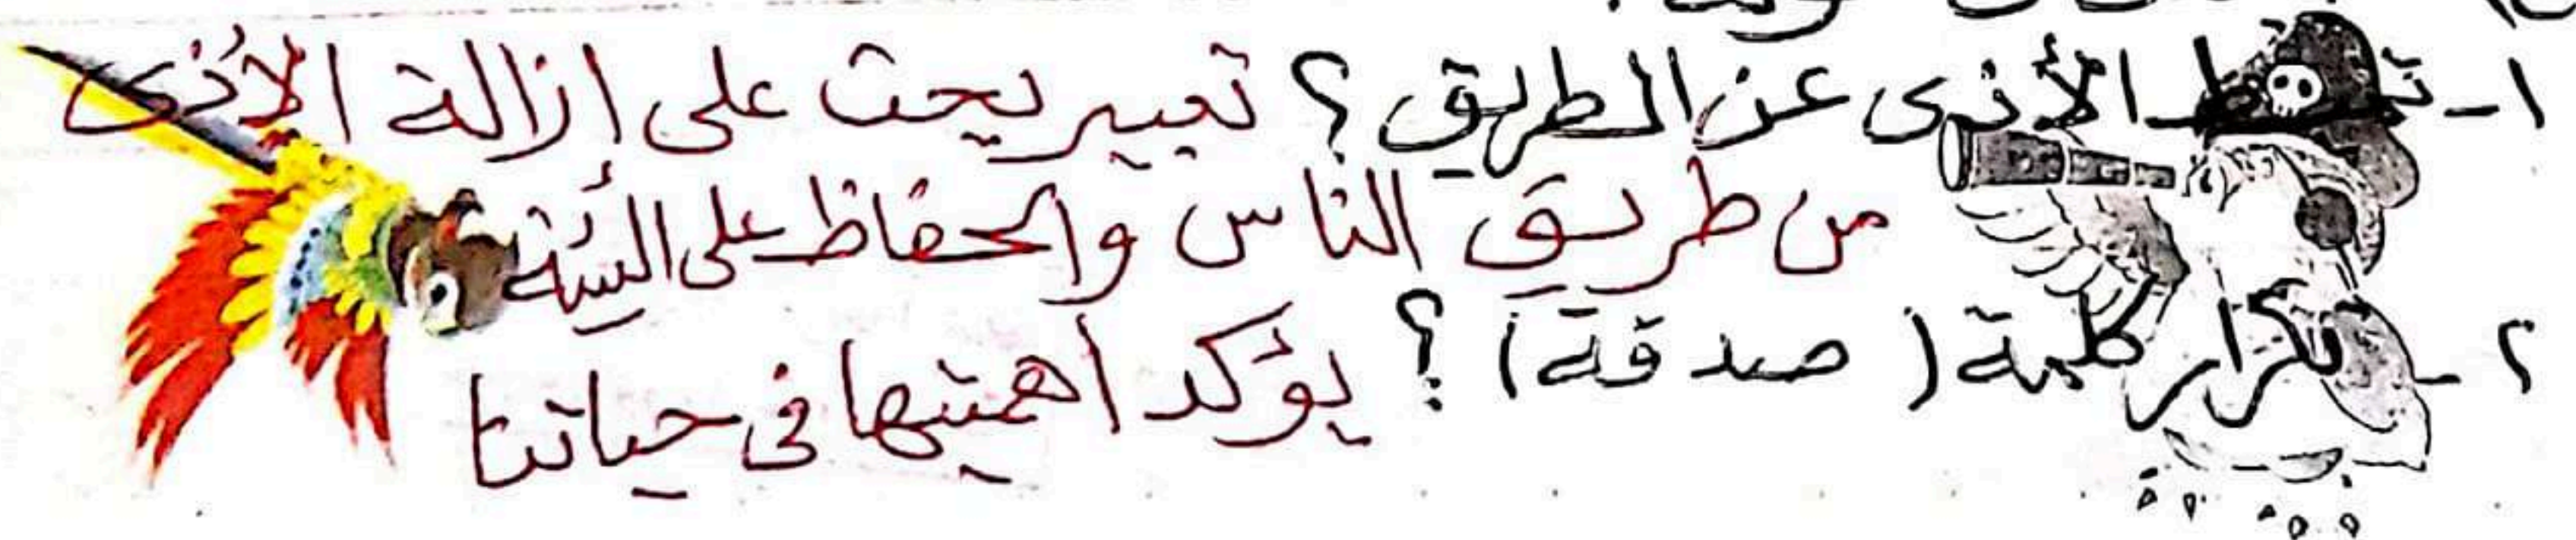 ١- الأذى عن الطريق ؟ تعبير يحث على ازالة الأذى
من طريق الناس والحفاظ على البيئة
٢- تكرار كلمة ( صدقة ) ؟ يؤكد أهميتها فى حياتنا